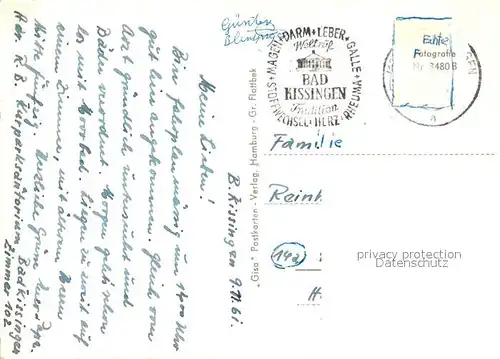 Günter
B.Kissingen 9.11.61.
Meine Lieben!
Bin fahrplanmässig um 1400 Uhr
gut hier angekommen. Gleich vom
Arzt gründlich untersucht und
Bäder verordnet. Morgen geht's schon
los mit Moorbad. Liegen zu zweit auf
einem Zimmer, mit älterem Herrn
Mitte fünfzig. Herzliche Grüsse
Adr. K. B. Kurparksanatorium Bad Kissingen
Zimmer 102
"Gisa" Postkarten-Verlag, Hamburg - Gr. Flottbek
MAGEN DARM LEBER GALLE RHEUMA HERZ STOFFWECHSEL
Weltruf
BAD
KISSINGEN
Tradition
Echte
Fotografie
Nr. 3480 B
a
Familie
(14a)
privacy protection
Datenschutz